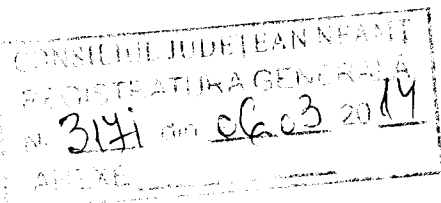 CONSILIUL JUDEȚEAN NEAMȚ
REGISTRATURA GENERALĂ
Nr. din 06.03 2014
ANEXE